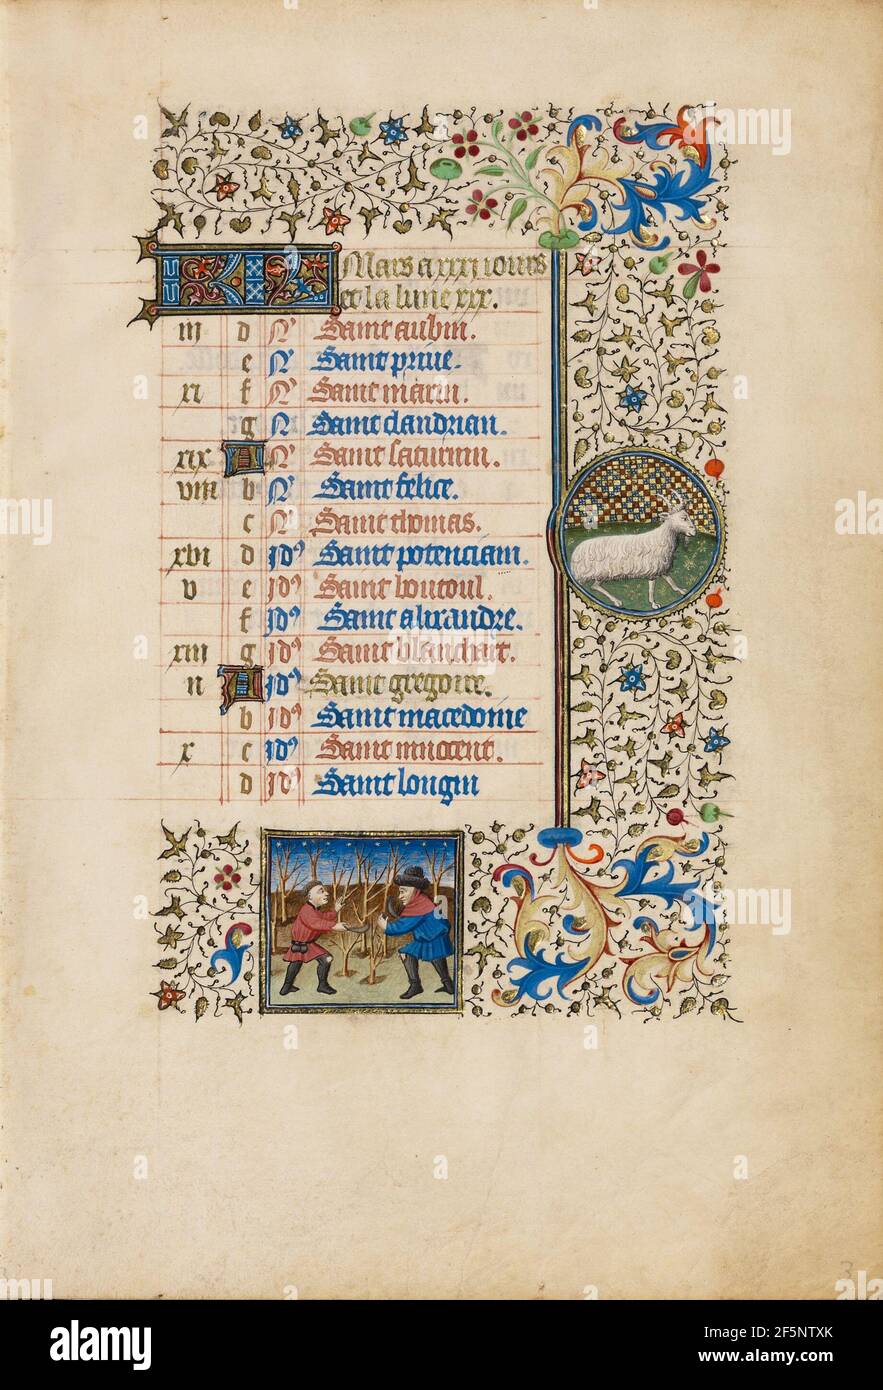 KL Mars a xxxi iours
et la lune xxx.
iii d N Saint aubin.
e N Saint priue.
xi f N Saint marin.
g N Saint dandrian.
xix A N Saint saturnin.
viii b N Saint felice.
c N Saint thomas.
xvi d id Saint potenciam.
v e id Saint boutoul.
f id Saint alixandre.
xiii g id Saint blanchart.
ii A id Saint gregoire.
b id Saint macedonie
x c id Saint innocent.
d id Saint longin
3
alamy
Image ID: 2F5NTXK
www.alamy.com